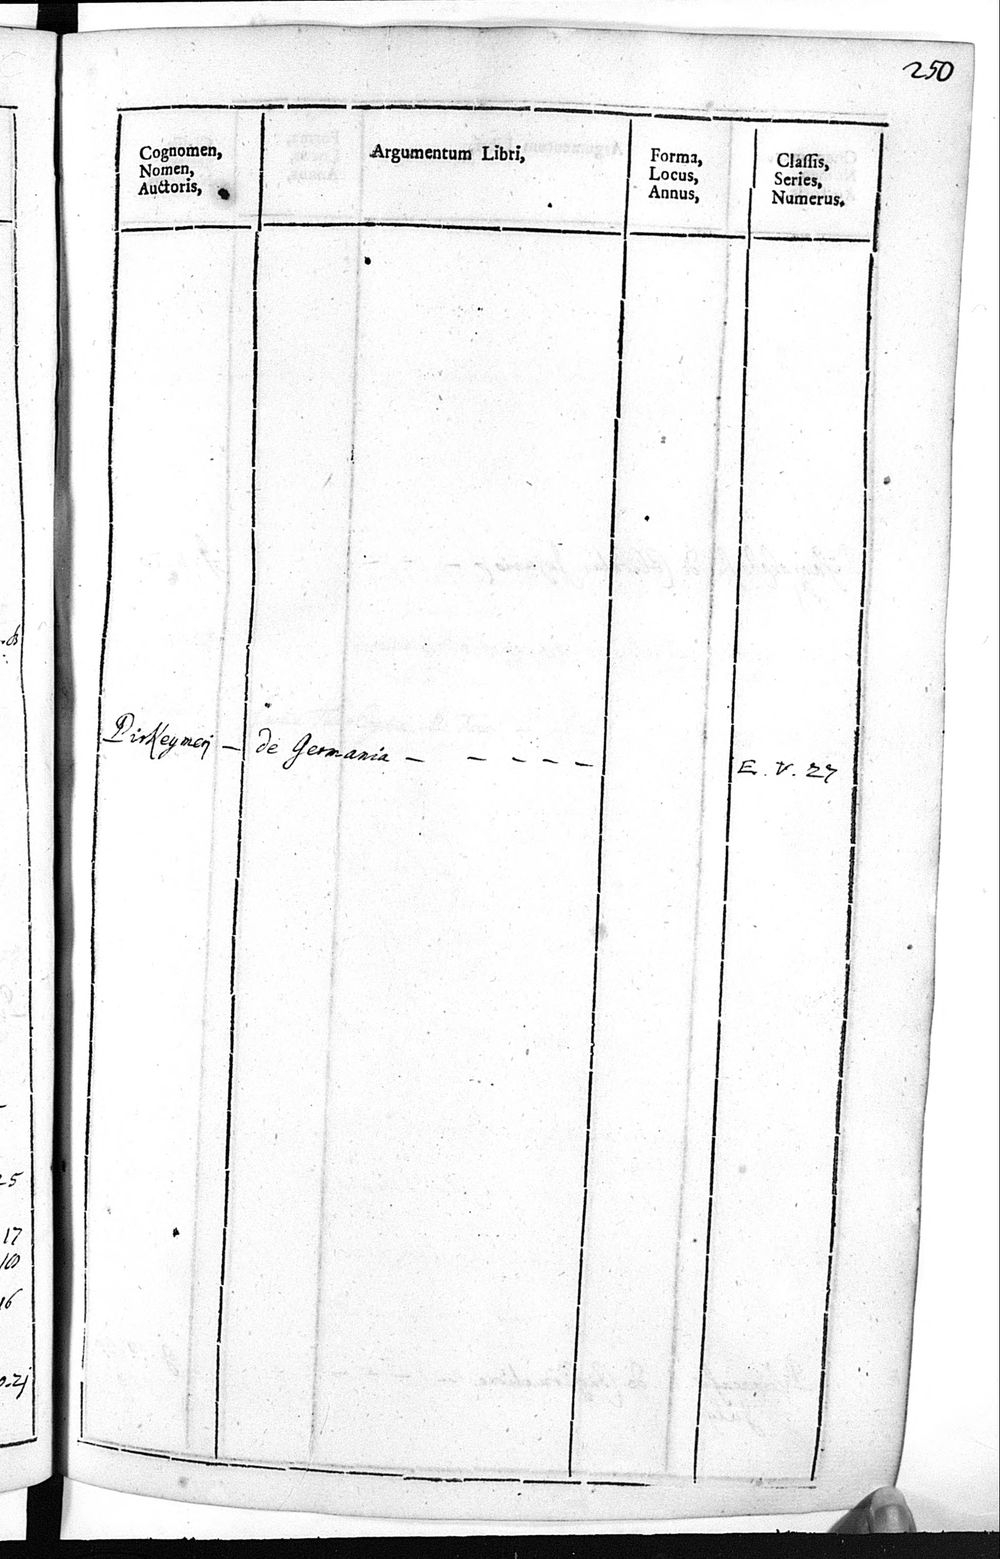 250
Cognomen,
Nomen,
Auctoris,
Argumentum Libri,
Forma,
Locus,
Annus,
Classis,
Series,
Numerus.
Pirkeymerj — de Germania — — — — — E. V. 27
25
17
10
16